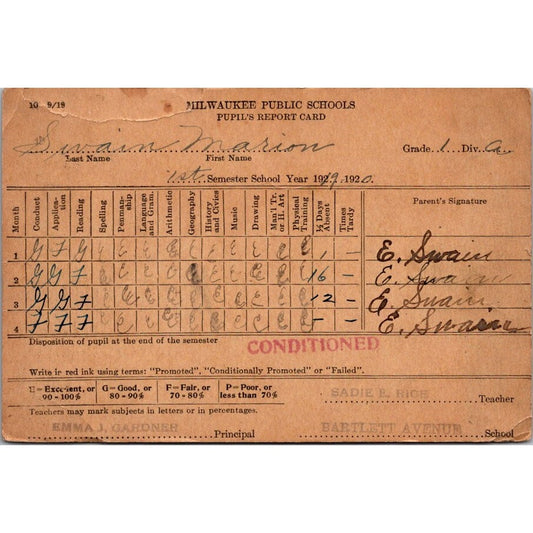 10 9/19 MILWAUKEE PUBLIC SCHOOLS
PUPIL'S REPORT CARD
Swain Marion Grade 1 Div. a
Last Name First Name
1st Semester School Year 1929, 1920.
Month Conduct Application Reading Spelling Penmanship Language and Gram. Arithmetic Geography History and Civics Music Drawing Man'l Tr. or H. Art Physical Training ½ Days Absent Times Tardy Parent's Signature
1 G F G 1 – E. Swain
2 G G F 16 – E. Swain
3 G G F 12 – E. Swain
4 F F F – – E. Swain
Disposition of pupil at the end of the semester CONDITIONED
Write in red ink using terms: "Promoted", "Conditionally Promoted" or "Failed".
E=Excellent, or 90-100% G=Good, or 80-90% F=Fair, or 70-80% P=Poor, or less than 70%
SADIE E. RICH Teacher
Teachers may mark subjects in letters or in percentages.
EMMA J. GARDNER Principal BARTLETT AVENUE School